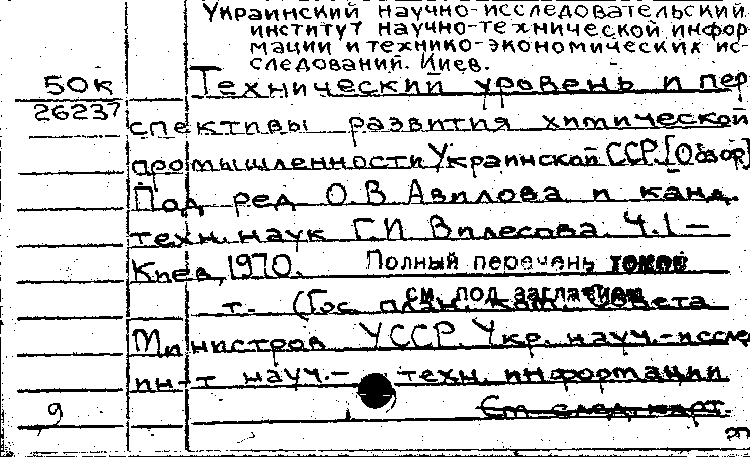 Украинский научно-исследовательский
институт научно-технической инфор
мации и технико-экономических ис-
следований. Киев.
50к Технический уровень и пер
26237 спективы развития химической
промышленности Украинской ССР. [Обзор]
Под ред О.В Авилова и канд.
техн. наук Г.И Вилесова. Ч.1 —
Киев, 1970. Полный перечень томов
см. под заглавием
т. (Гос план. ком. Совета
Министров УССР. Укр. науч.-иссле
ин-т науч.- техн. информации
9 См след карт.